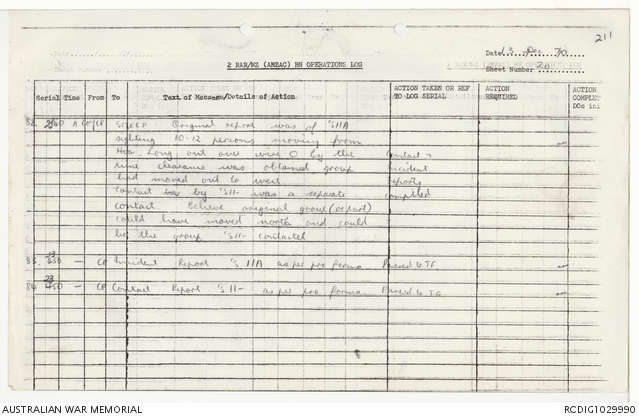 211
Date 13 Dec 70
2 RAR/NZ (ANZAC) BN OPERATIONS LOG
Sheet Number 20
Serial Time From To Text of Message/Details of Action ACTION TAKEN OR REF TO LOG SERIAL ACTION REQUIRED ACTION COMPLE DOs ini
82 A CP Original report was of S11A
sighting 10-12 persons moving from
Hoa Long out over wire O by the Contact &
time clearance was obtained group incident
had moved out to west reports
contact by S11- was a separate compiled
contact believe original group (or part)
could have moved north and could
be the group S11- contacted
83 — CP Incident Report S11A as per pro forma Passed to TF
84 — CP Contact Report S11- as per pro forma Passed to TF
AUSTRALIAN WAR MEMORIAL
RCDIG1029990